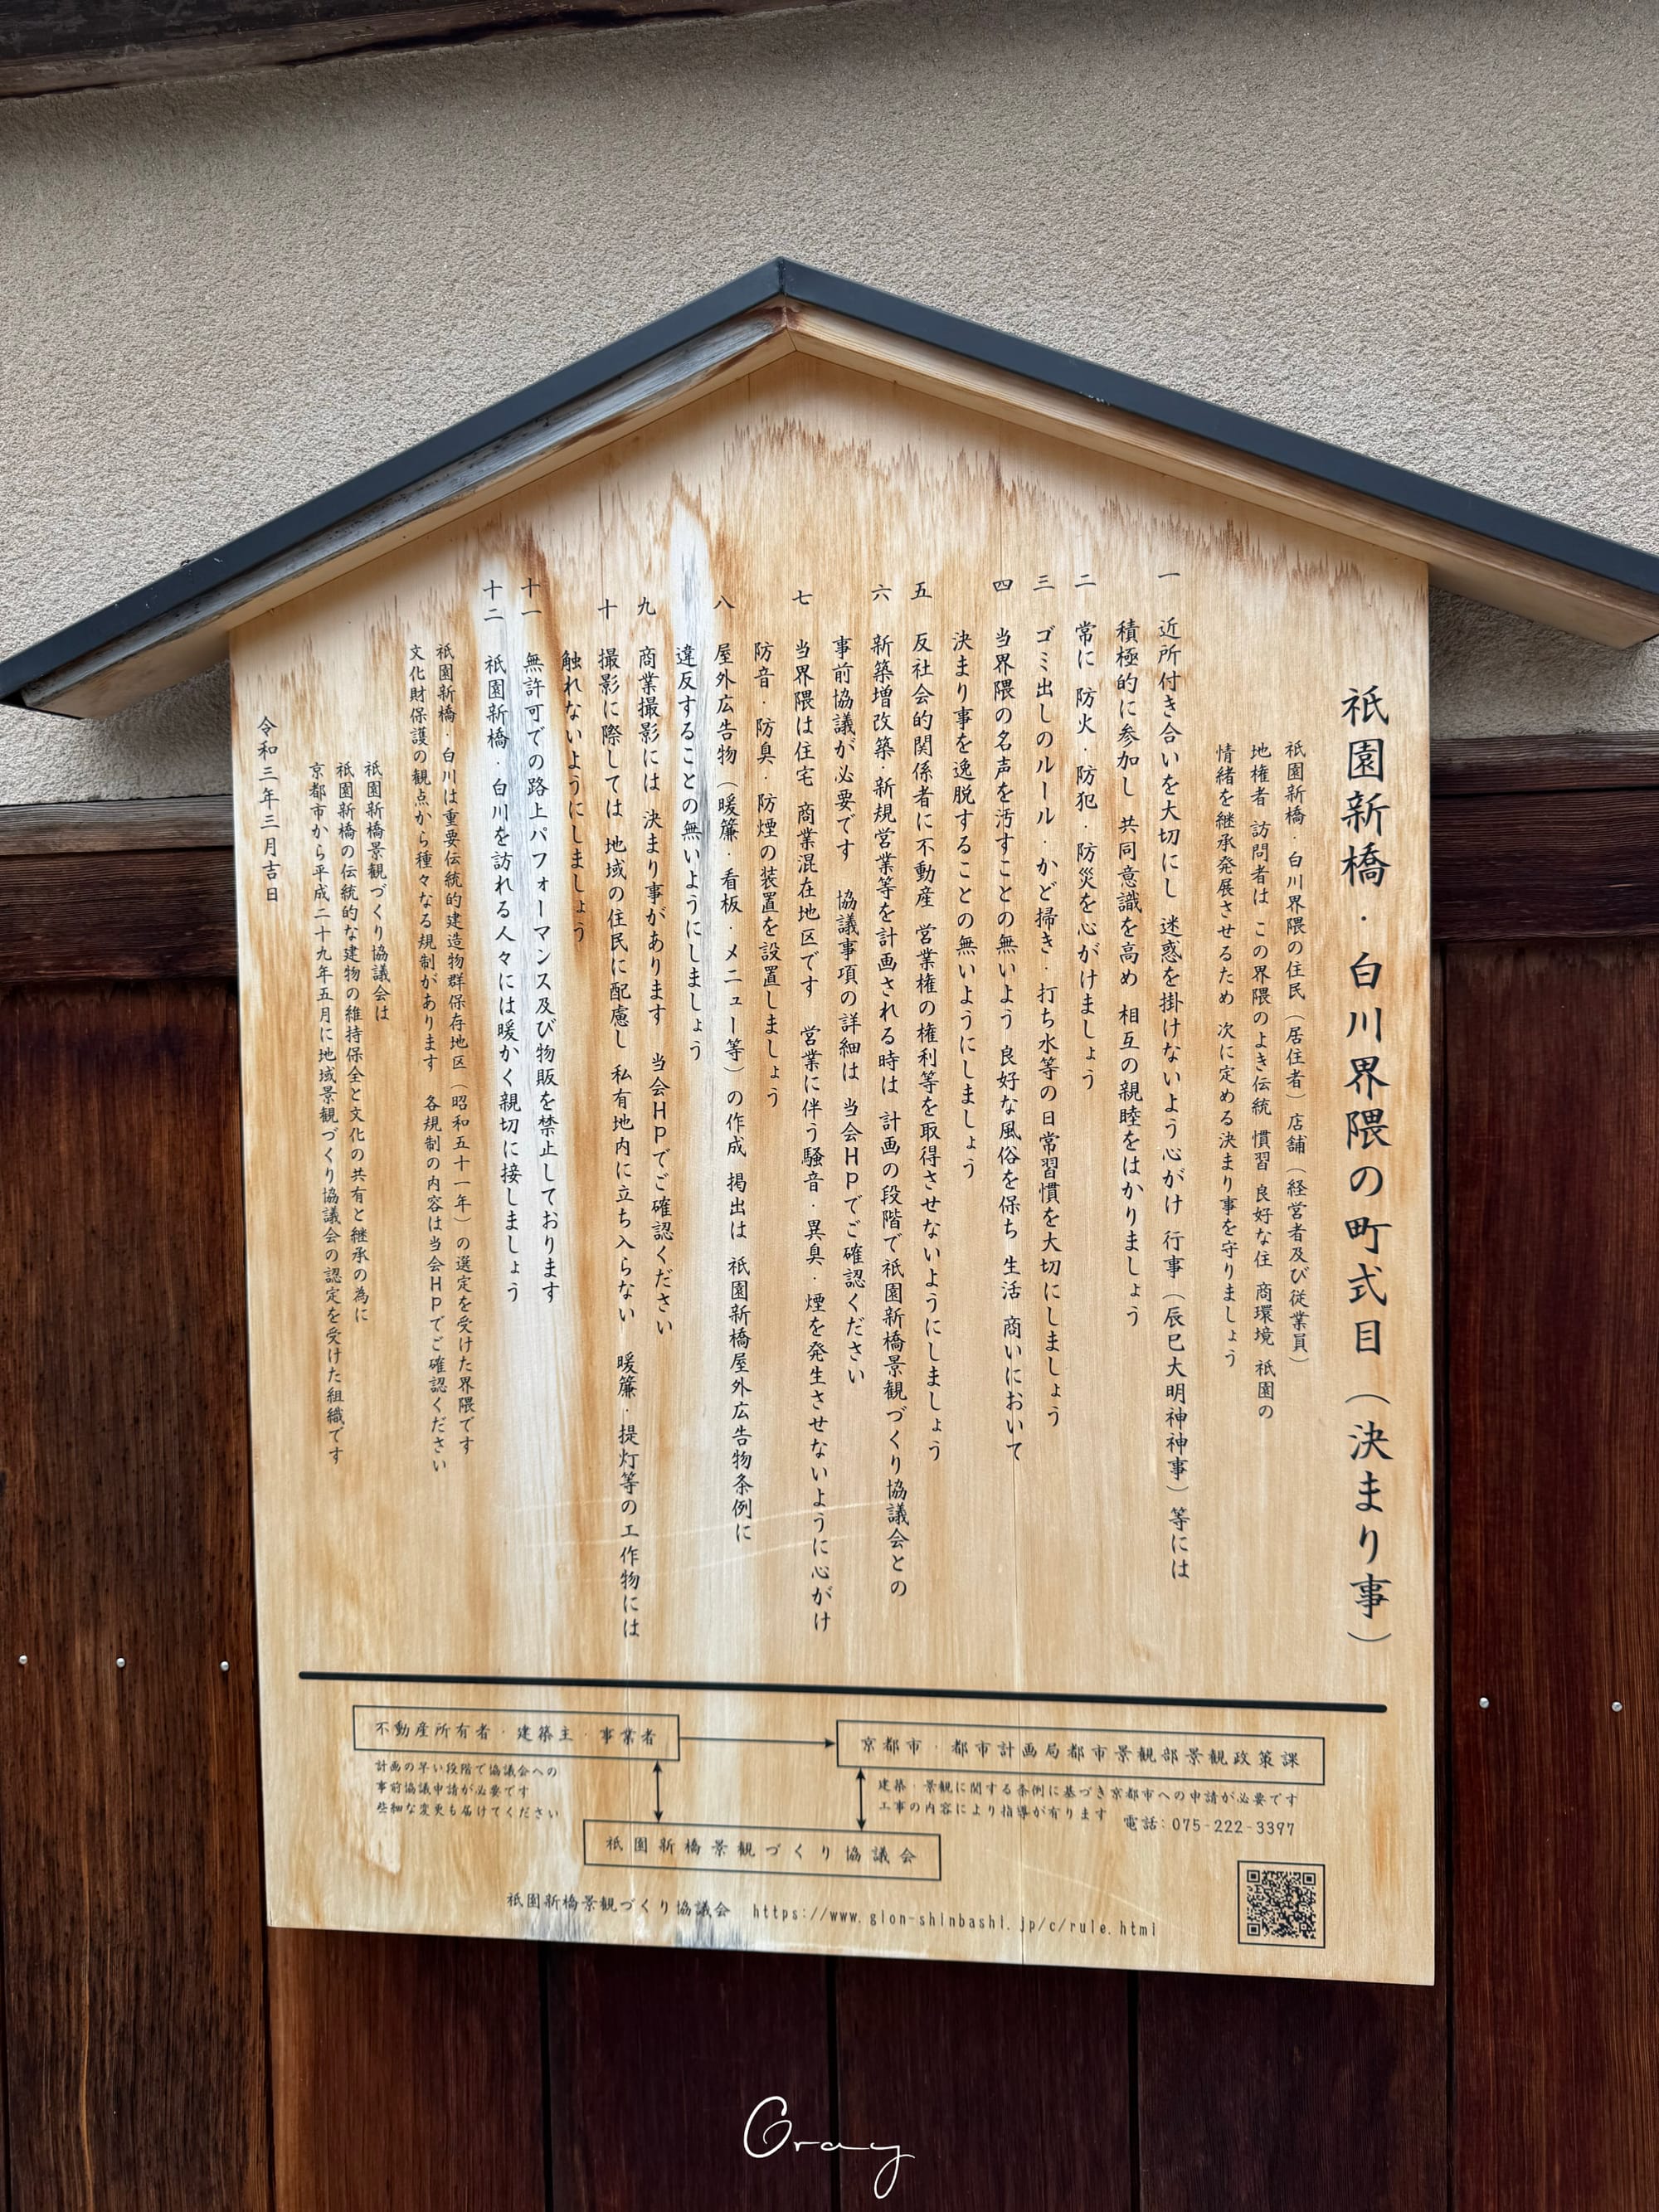 祇園新橋・白川界隈の町式目（決まり事）
祇園新橋・白川界隈の住民（居住者）店舗（経営者及び従業員）
地権者 訪問者は この界隈のよき伝統 慣習 良好な住 商環境 祇園の
情緒を継承発展させるため 次に定める決まり事を守りましょう
一 近所付き合いを大切にし 迷惑を掛けないよう心がけ 行事（辰巳大明神神事）等には
積極的に参加し 共同意識を高め 相互の親睦をはかりましょう
二 常に 防火・防犯・防災を心がけましょう
三 ゴミ出しのルール・かど掃き・打ち水等の日常習慣を大切にしましょう
四 当界隈の名声を汚すことの無いよう 良好な風俗を保ち 生活 商いにおいて
決まり事を逸脱することの無いようにしましょう
五 反社会的関係者に不動産 営業権の権利等を取得させないようにしましょう
六 新築増改築・新規営業等を計画される時は 計画の段階で祇園新橋景観づくり協議会との
事前協議が必要です 協議事項の詳細は 当会HPでご確認ください
七 当界隈は住宅 商業混在地区です 営業に伴う騒音・異臭・煙を発生させないように心がけ
防音・防臭・防煙の装置を設置しましょう
八 屋外広告物（暖簾・看板・メニュー等）の作成 掲出は 祇園新橋屋外広告物条例に
違反することの無いようにしましょう
九 商業撮影には 決まり事があります 当会HPでご確認ください
十 撮影に際しては 地域の住民に配慮し 私有地内に立ち入らない 暖簾・提灯等の工作物には
触れないようにしましょう
十一 無許可での路上パフォーマンス及び物販を禁止しております
十二 祇園新橋・白川を訪れる人々には暖かく親切に接しましょう
祇園新橋・白川は重要伝統的建造物群保存地区（昭和五十一年）の選定を受けた界隈です
文化財保護の観点から種々なる規制があります 各規制の内容は当会HPでご確認ください
祇園新橋景観づくり協議会は
祇園新橋の伝統的な建物の維持保全と文化の共有と継承の為に
京都市から平成二十九年五月に地域景観づくり協議会の認定を受けた組織です
令和三年三月吉日
不動産所有者・建築主・事業者
計画の早い段階で協議会への
事前協議申請が必要です
些細な変更も届けてください
京都市・都市計画局都市景観部景観政策課
建築・景観に関する条例に基づき京都市への申請が必要です
工事の内容により指導が有ります 電話:075-222-3397
祇園新橋景観づくり協議会
祇園新橋景観づくり協議会 https://www.gion-shinbashi.jp/c/rule.html
Gray